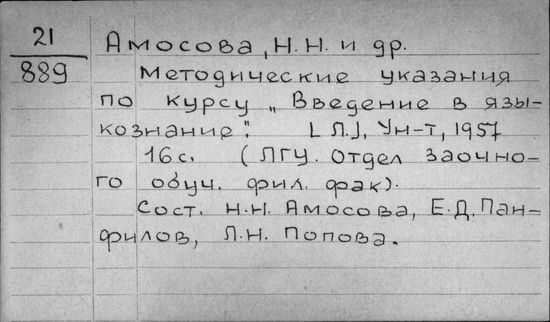 21
889
Амосова, Н.Н. и др.
Методические указания
по курсу „Введение в язы-
кознание". [Л.], Ун-т, 1957
16 с. (ЛГУ. Отдел заочно-
го обуч. фил. фак).
Сост. Н.Н. Амосова, Е.Д. Пан-
филов, Л.Н. Попова.